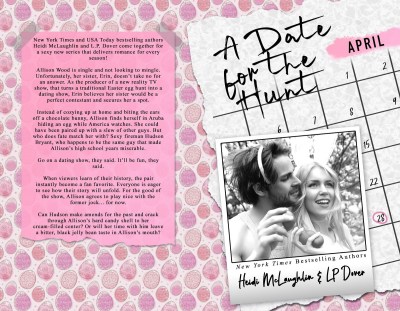 New York Times and USA Today bestselling authors
Heidi McLaughlin and L.P. Dover come together for
a sexy new series that delivers romance for every
season!
Allison Wood is single and not looking to mingle.
Unfortunately, her sister, Erin, doesn't take no for
an answer. As the producer of a new reality TV
show, that turns a traditional Easter egg hunt into a
dating show, Erin believes her sister would be a
perfect contestant and secures her a spot.
Instead of cozying up at home and biting the ears
off a chocolate bunny, Allison finds herself in Aruba
hiding an egg while America watches. She could
have been paired up with a slew of other guys. But
who does fate match her with? Sexy fireman Hudson
Bryant, who happens to be the same guy that made
Allison's high school years miserable.
Go on a dating show, they said. It'll be fun, they
said.
When viewers learn of their history, the pair
instantly become a fan favorite. Everyone is eager
to see how their story will unfold. For the good of
the show, Allison agrees to play nice with the
former jock... for now.
Can Hudson make amends for the past and crack
through Allison's hard candy shell to her
cream-filled center? Or will her time with him leave
a bitter, black jelly bean taste in Allison's mouth?
A Date
for the
Hunt
APRIL
1
2
7
8
9
15
22
28
New York Times Bestselling Authors
Heidi McLaughlin & LP Dover